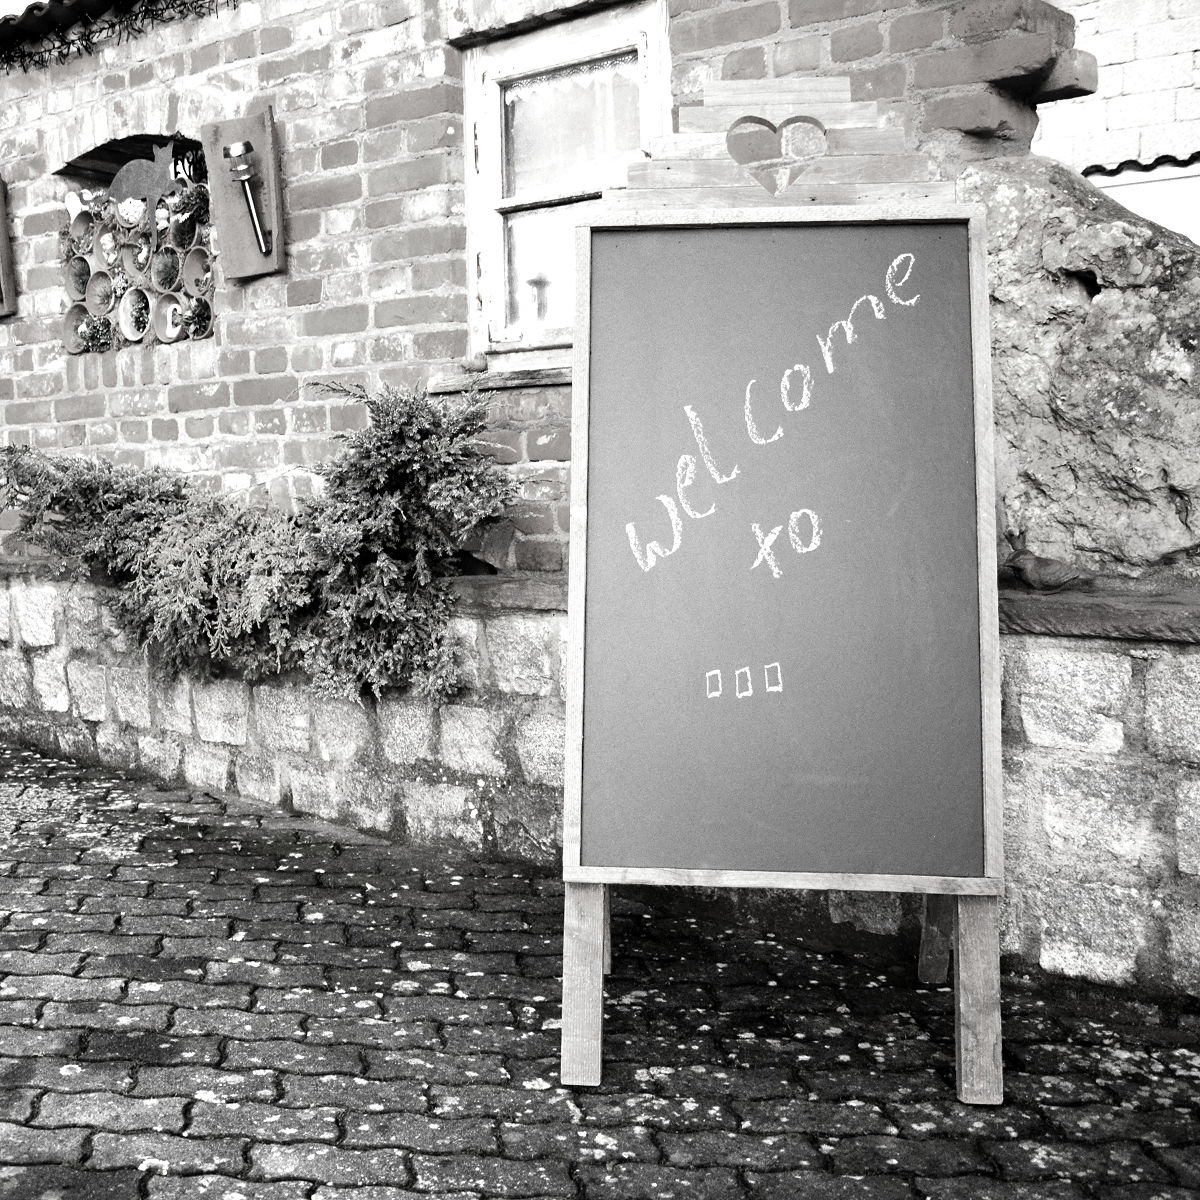 welcome
to
▯▯▯